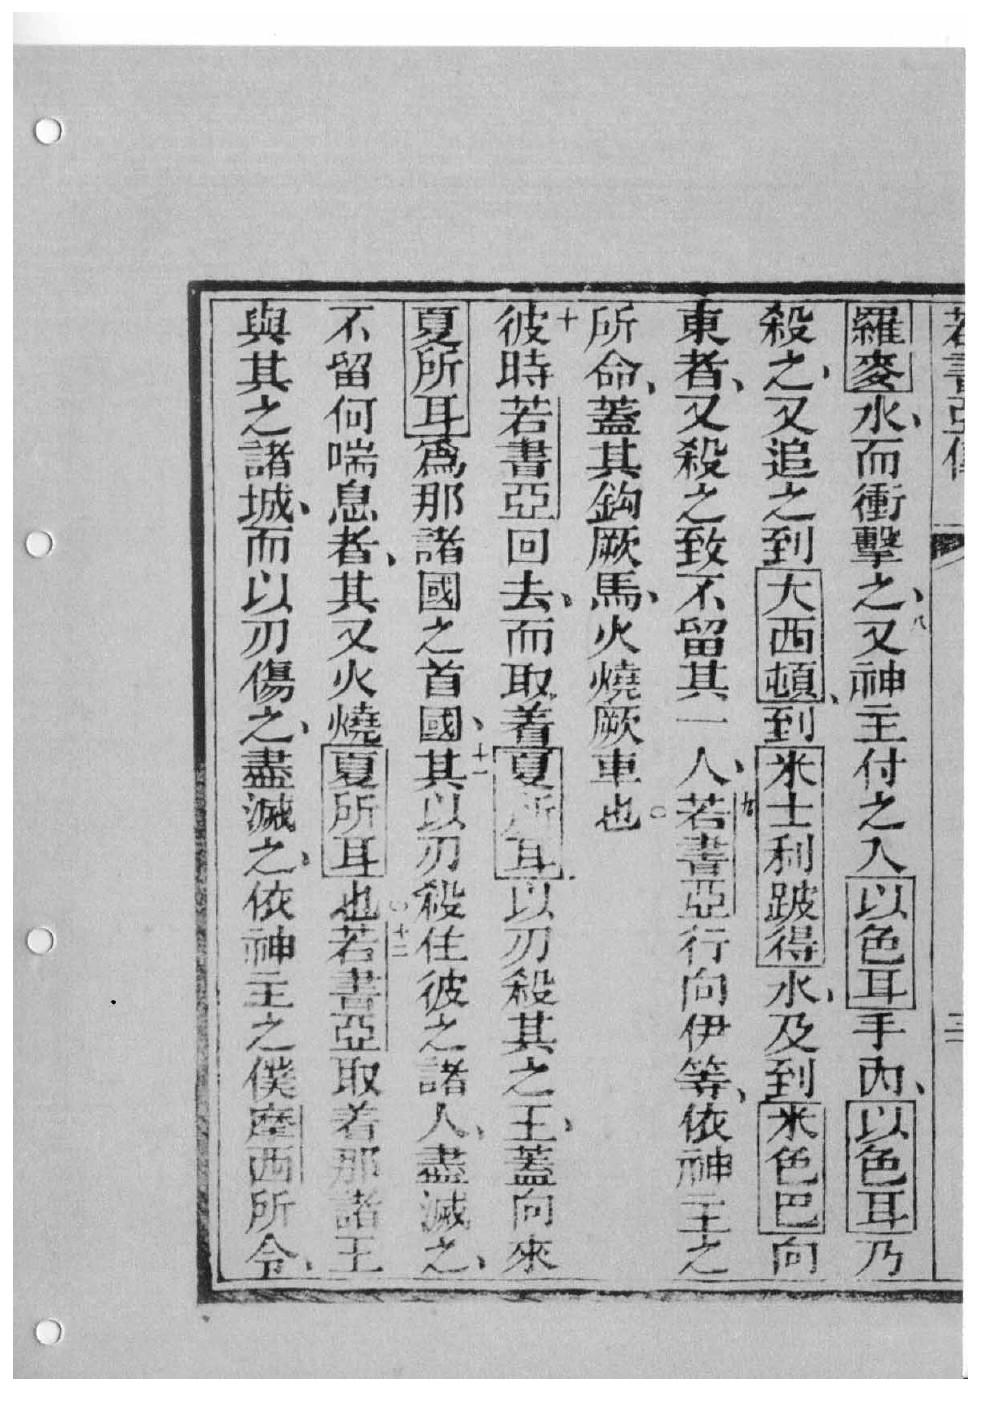 若書亞傳 三
羅麥水、而衝擊之、八又神主付之入以色耳手內、以色耳乃
殺之、又追之到大西頓、到米士利跛得水、及到米色巴向
東者、又殺之致不留其一人、九若書亞行向伊等、依神主之
所命、蓋其鈎厥馬、火燒厥車也。
十彼時若書亞回去、而取着夏所耳以刃殺其之王、蓋向來
夏所耳爲那諸國之首國、十一其以刃殺住彼之諸人、盡滅之、
不留何喘息者、其又火燒夏所耳也。十二若書亞取着那諸王
與其之諸城、而以刃傷之、盡滅之、依神主之僕摩西所令、